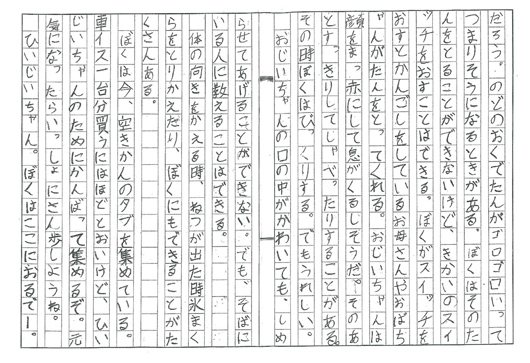 だろう。のどのおくでたんがゴロゴロいって
つまりそうになるときがある。ぼくはそのた
んをとることができないけど、きかいのスイ
ッチをおすことはできる。ぼくがスイッチを
おすとかんごしをしているお母さんやおばち
ゃんがたんをとってくれる。おじいちゃんは
顔をまっ赤にして息がくるしそうだ。そのあ
とすっきりしてしゃべったりすることがある。
その時ぼくはびっくりする。でもうれしい。
おじいちゃんの口の中がかわいても、しめ
らせてあげることができない。でも、そばに
いる人に教えることはできる。
体の向きをかえる時、ねつが出た時氷まく
らをとりかえだり、ぼくにもできることがた
くさんある。
ぼくは今、空きかんのタブを集めている。
車イス一台分買うにはほどとおいけど、ひい
じいちゃんのためにがんばって集めるぞ。元
気になったらいっしょにさん歩しようね。
ひいじいちゃん。ぼくはここにおるでー。